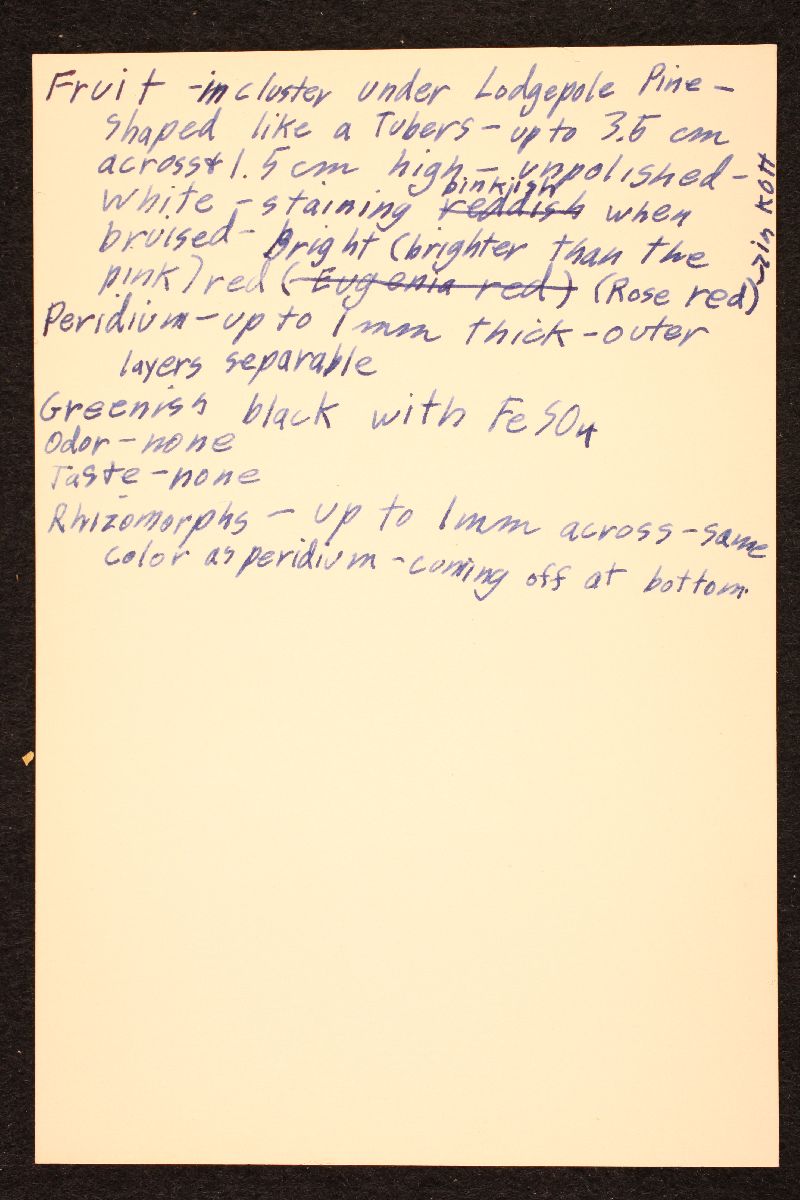 Fruit - in cluster under Lodgepole Pine -
shaped like a Tubers - up to 3.5 cm
across & 1.5 cm high - unpolished -
white - staining reddish pinkish when
bruised - Bright (brighter than the
pink) red (Eugenia red) (Rose red)
in KOH
Peridium - up to 1 mm thick - outer
layers separable
Greenish black with FeSO4
Odor - none
Taste - none
Rhizomorphs - up to 1 mm across - same
color as peridium - coming off at bottom.